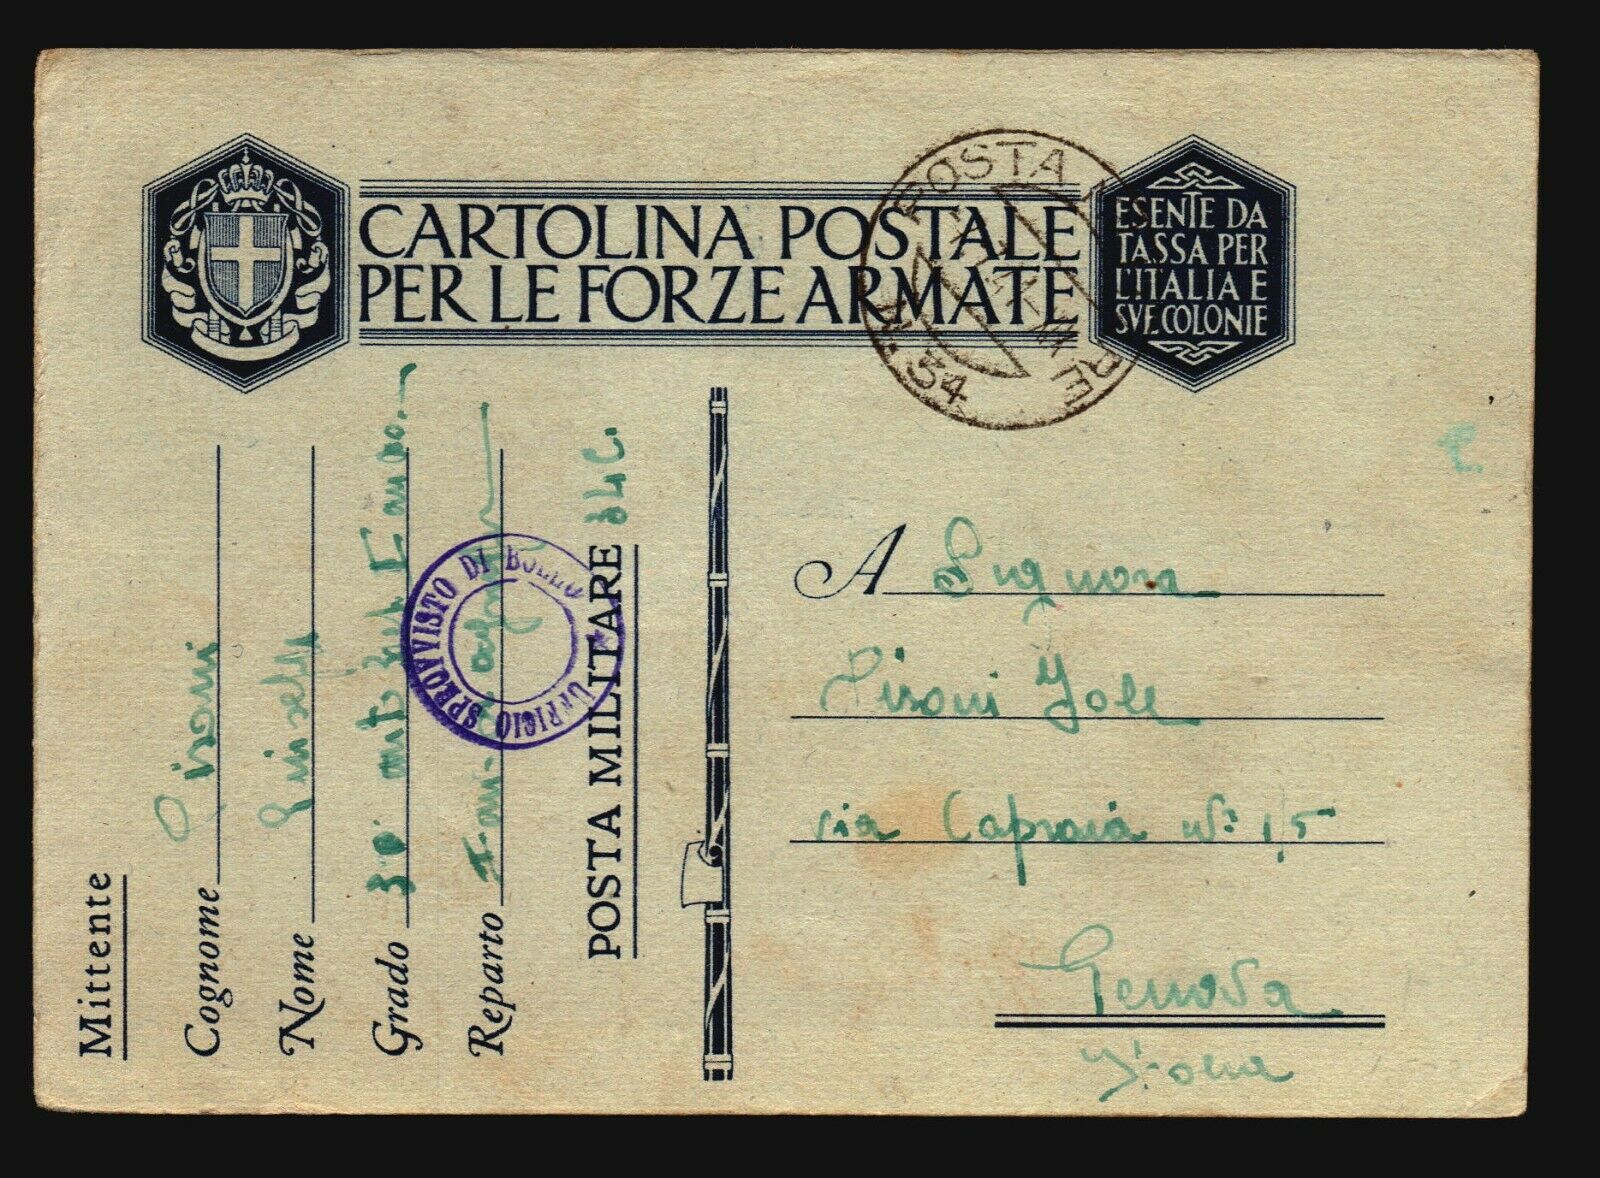 CARTOLINA POSTALE
PER LE FORZE ARMATE
ESENTE DA
TASSA PER
L'ITALIA E
SVE COLONIE
POSTA
N. 34
Mittente
Cognome Pisoni
Nome
Grado 30°
Reparto
POSTA MILITARE 34 C.
UFFICIO SPROVVISTO DI BOLLO
A Signora
Pisoni Jole
via Capraia N° 1/5
Genova